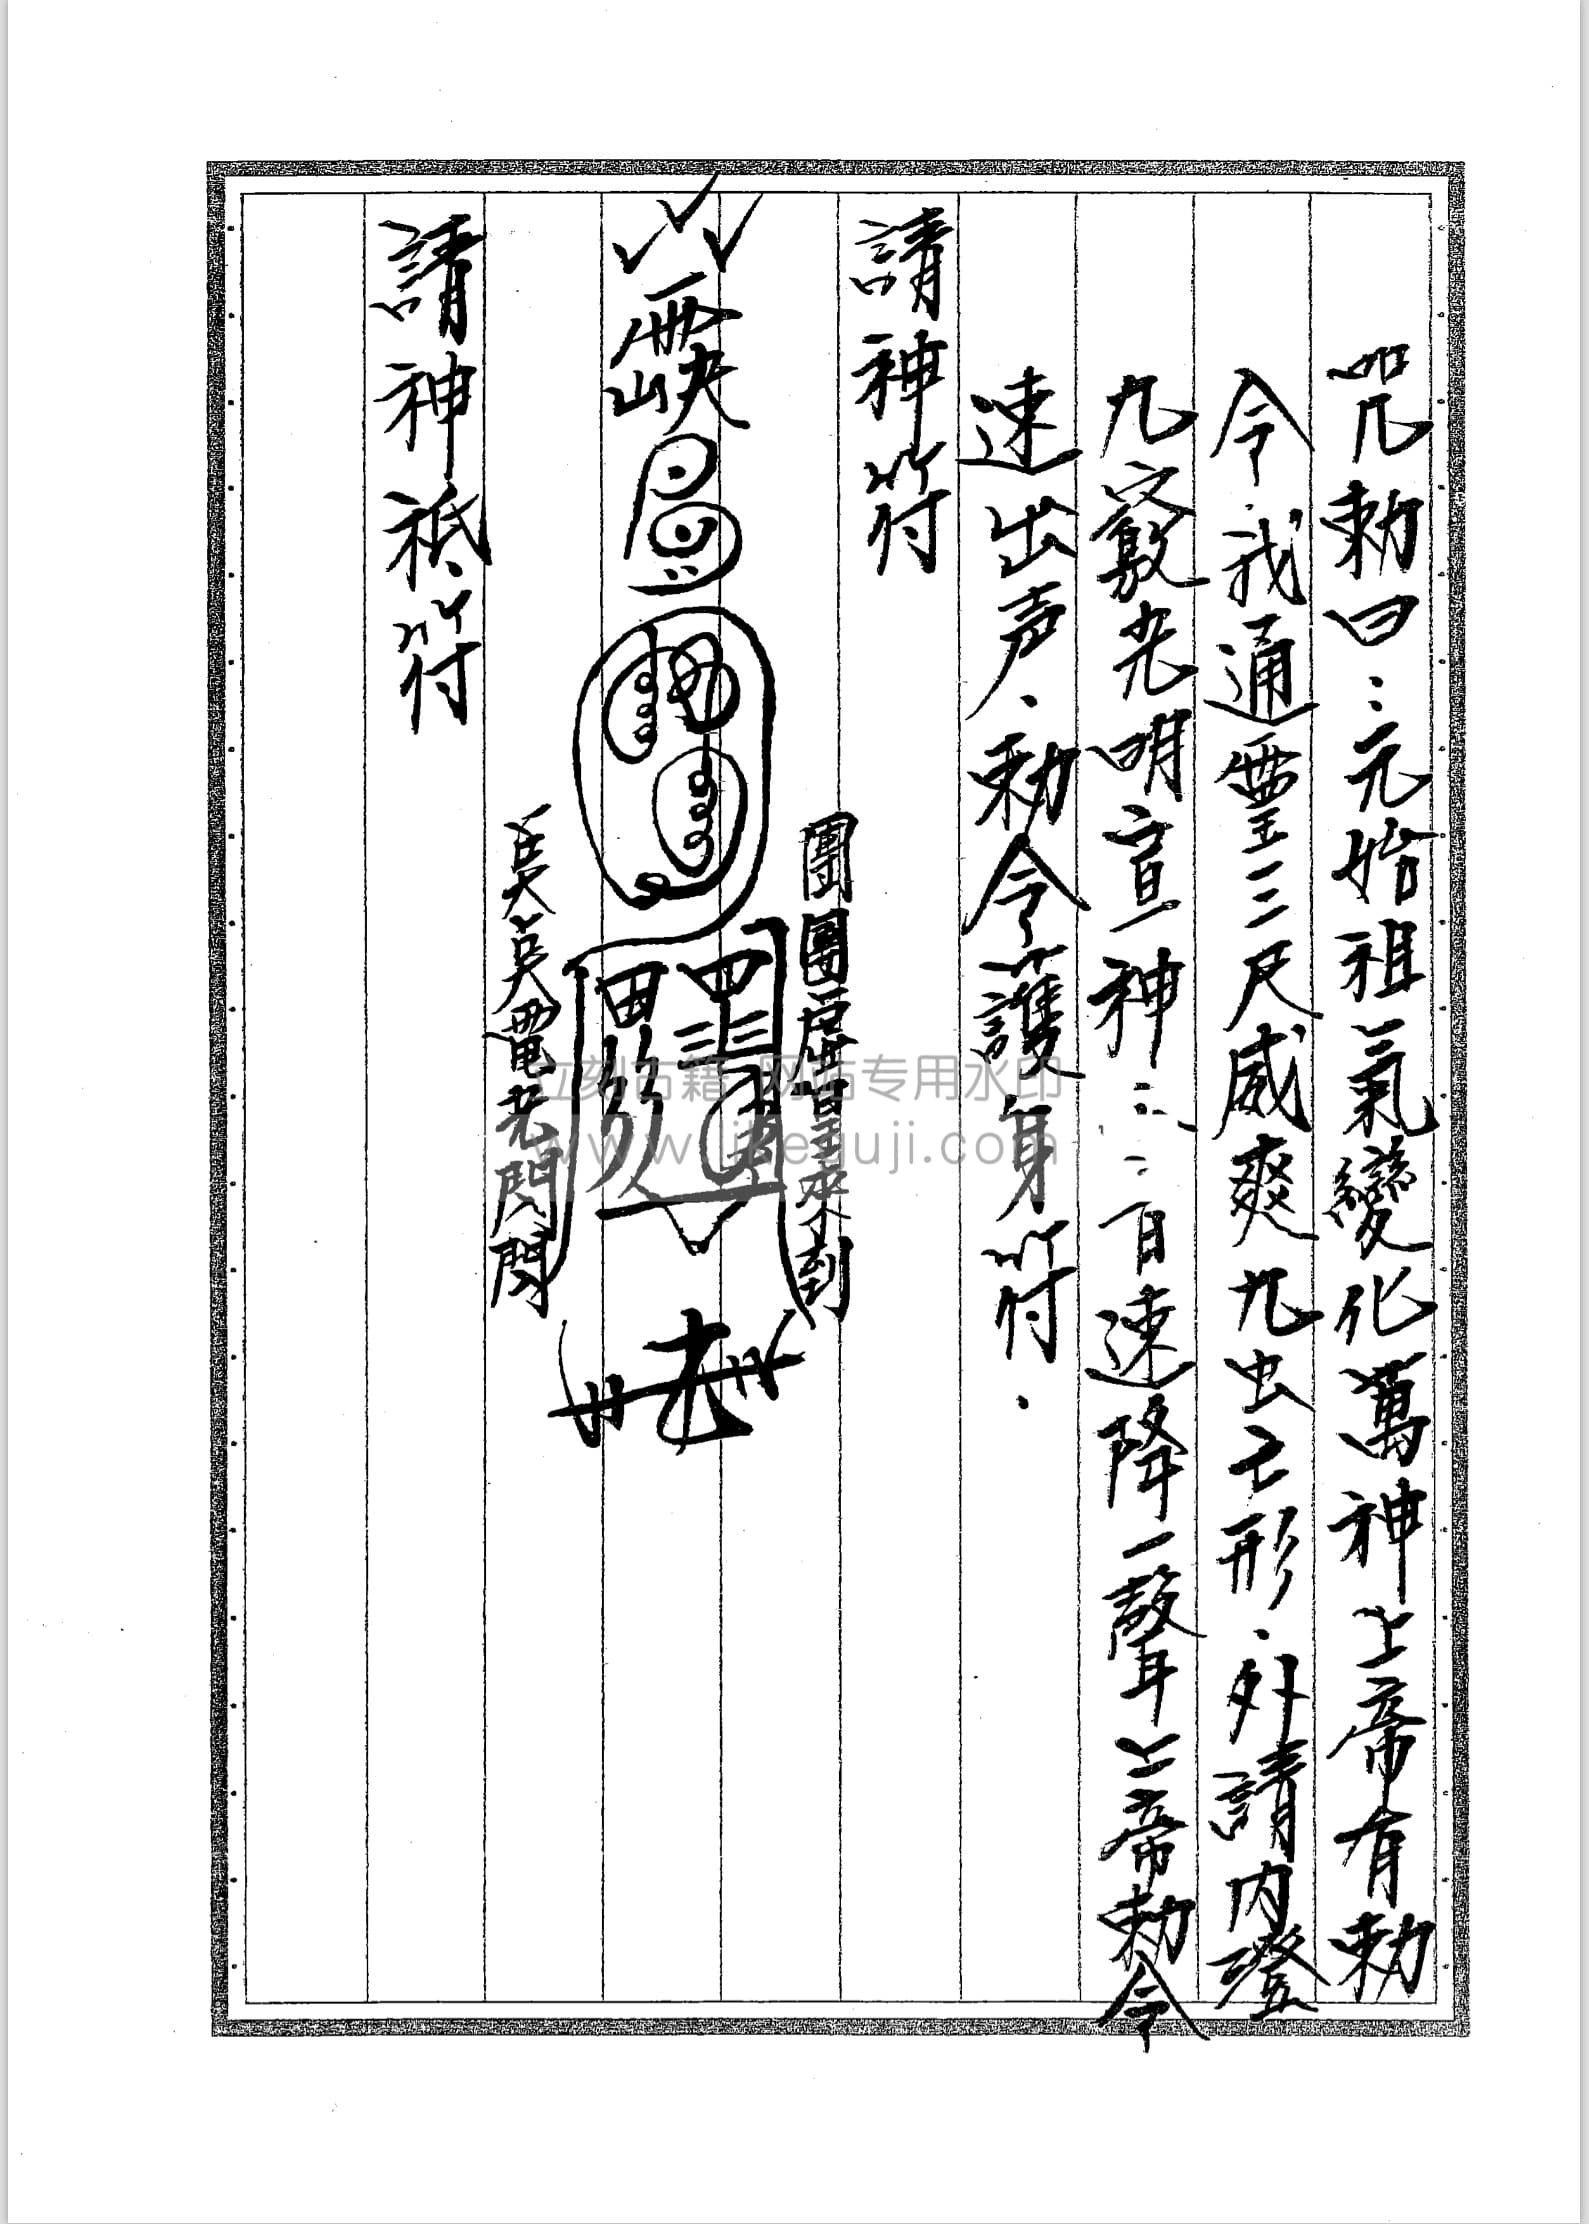 咒勅曰：元始祖氣變化萬神上帝有勅
令我通靈三尺威爽九虫亡形外請内澄
九竅光明宣神二二百速降一聲上帝勅令
速出声勅令護身符
請神符
團團
皇來到
電老閃閃
請神祗符
立刻古籍 网站专用水印
www.likeguji.com